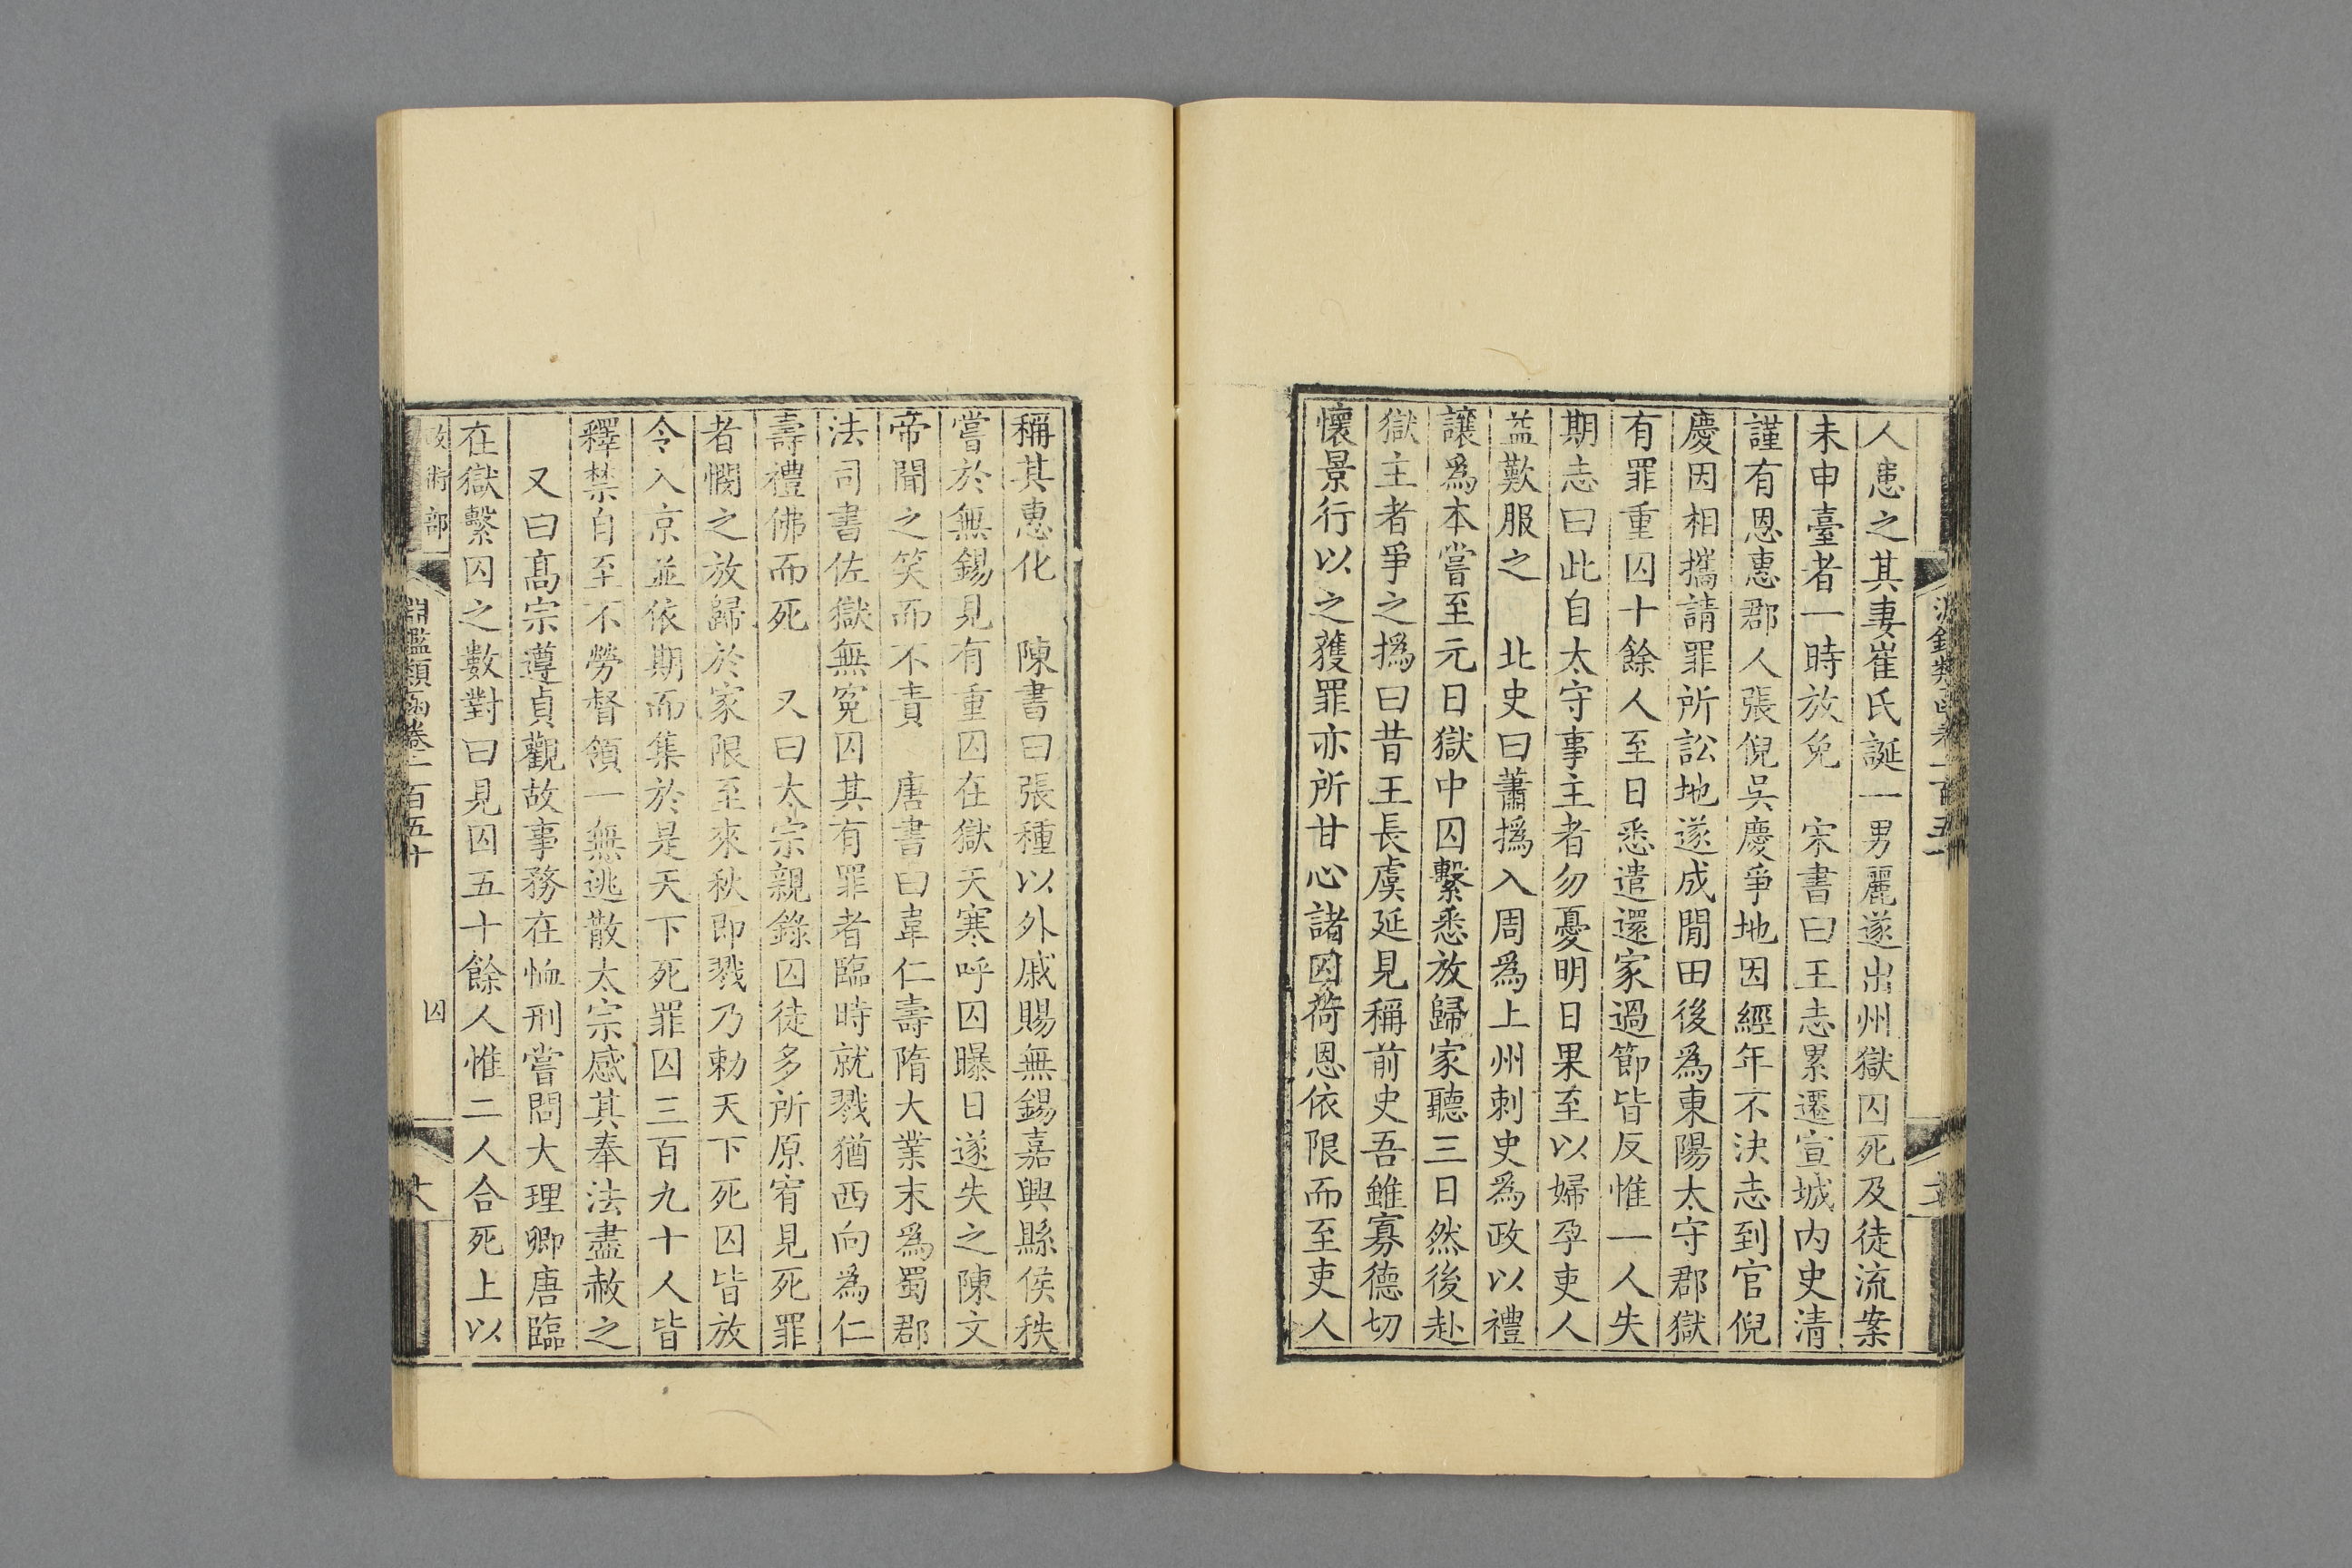 人患之其妻崔氏誕一男麗遂出州獄囚死及徒流案
未申臺者一時放免　宋書曰王志累遷宣城内史清
謹有恩惠郡人張倪吳慶爭地因經年不決志到官倪
慶因相攜請罪所訟地遂成閒田後爲東陽太守郡獄
有罪重囚十餘人至日悉遣還家過節皆反惟一人失
期志曰此自太守事主者勿憂明日果至以婦孕吏人
益歎服之　北史曰蕭撝入周爲上州刺史爲政以禮
讓爲本嘗至元日獄中囚繫悉放歸家聽三日然後赴
獄主者爭之撝曰昔王長虞延見稱前史吾雖寡德切
懷景行以之獲罪亦所甘心諸囚荷恩依限而至吏人
稱其惠化　陳書曰張種以外戚賜無錫嘉興縣侯秩
嘗於無錫見有重囚在獄天寒呼囚曝日遂失之陳文
帝聞之笑而不責　唐書曰韋仁壽隋大業末爲蜀郡
法司書佐獄無冤囚其有罪者臨時就戮猶西向爲仁
壽禮佛而死　又曰太宗親錄囚徒多所原宥見死罪
者憫之放歸於家限至來秋即戮乃勅天下死囚皆放
令入京並依期而集於是天下死罪囚三百九十人皆
釋禁自至不勞督領一無逃散太宗感其奉法盡赦之
又曰髙宗遵貞觀故事務在恤刑嘗問大理卿唐臨
在獄繫囚之數對曰見囚五十餘人惟二人合死上以
政術部
淵鑑類函卷一百五十
囚